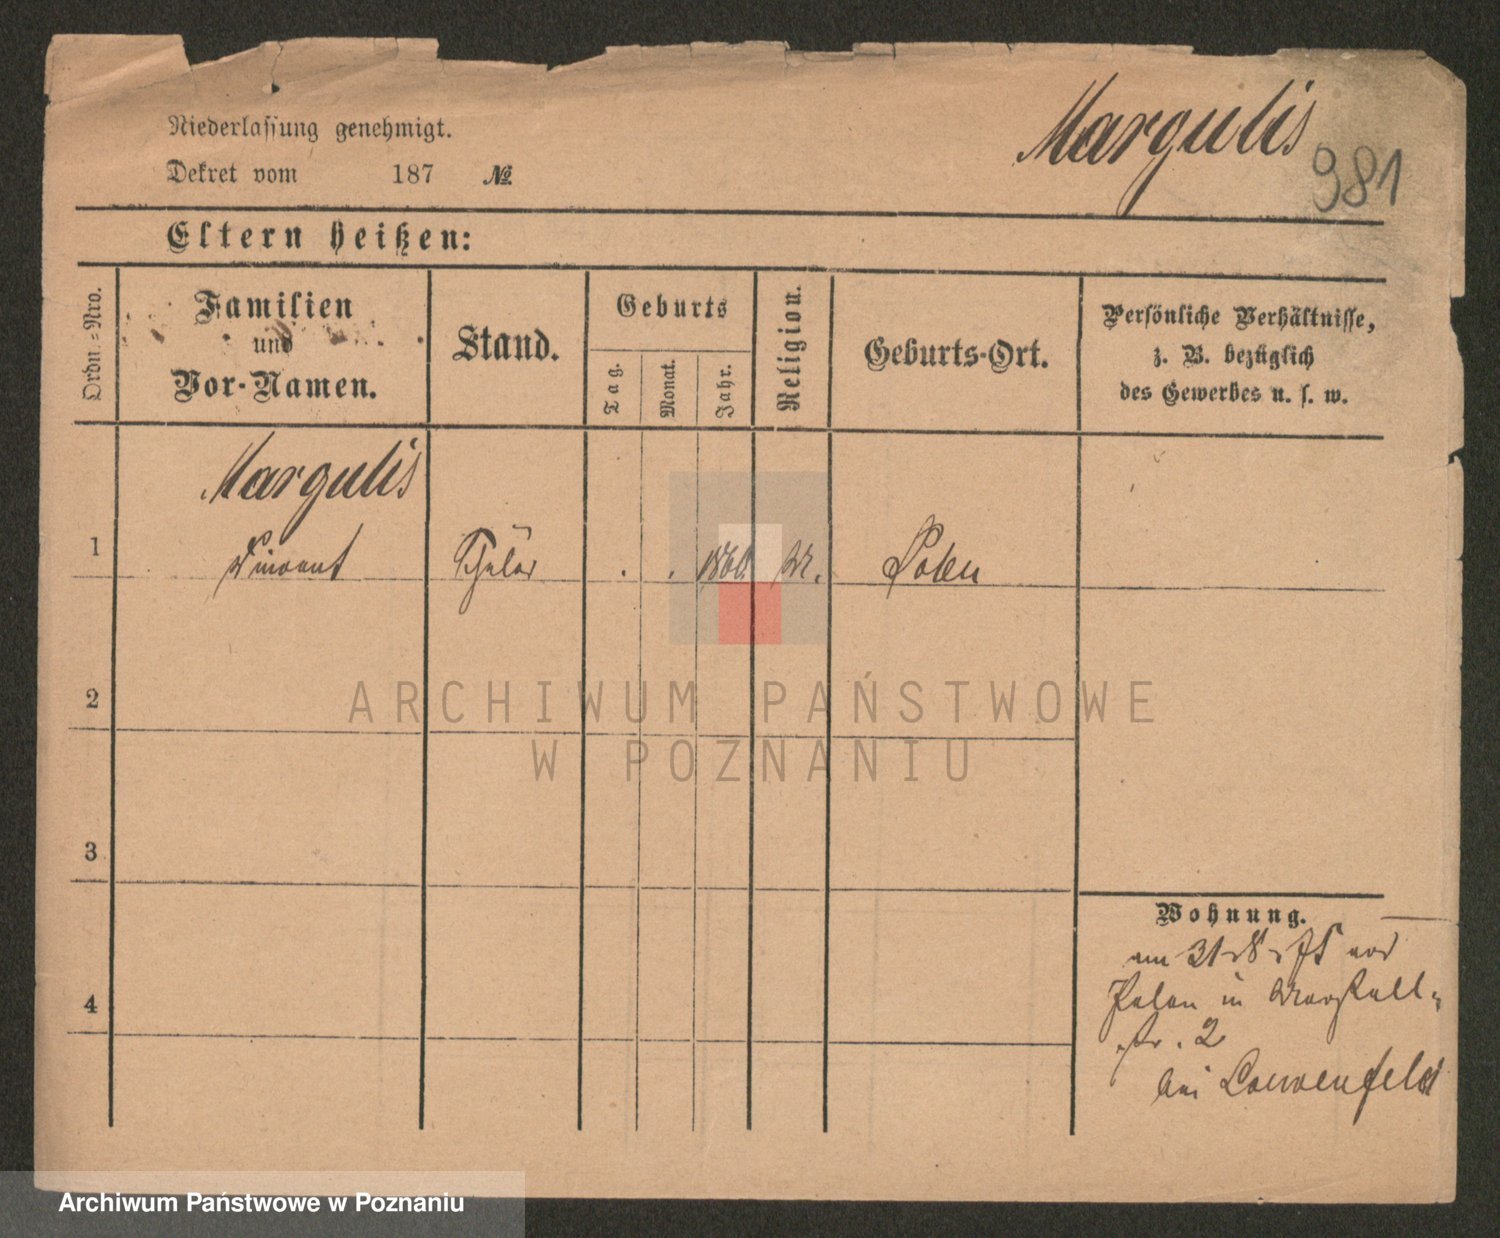 Niederlassung genehmigt.
Margulis
981
Dekret vom 187 №
Eltern heißen:
Ordn.=Nro.
Familien
und
Vor-Namen.
Stand.
Geburts
Tag.
Monat.
Jahr.
Religion.
Geburts-Ort.
Persönliche Verhältnisse,
z. B. bezüglich
des Gewerbes u. s. w.
Margulis
1 Schüler Polen
2
ARCHIWUM PAŃSTWOWE
W POZNANIU
3
Wohnung.
am 31/8 75 aus
Polen in
4
str. 2
bei Loewenfeld
Archiwum Państwowe w Poznaniu